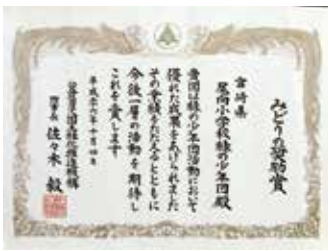 みどりの奨励賞
宮崎県
尾向小学校緑の少年団殿
貴団は緑の少年団活動において
優れた成果をあげられました
その業績をたたえるとともに
今後一層の活動を期待し
これを賞します
平成二六年十月四日
公益社団法人国土緑化推進機構
理事長 佐々木 毅